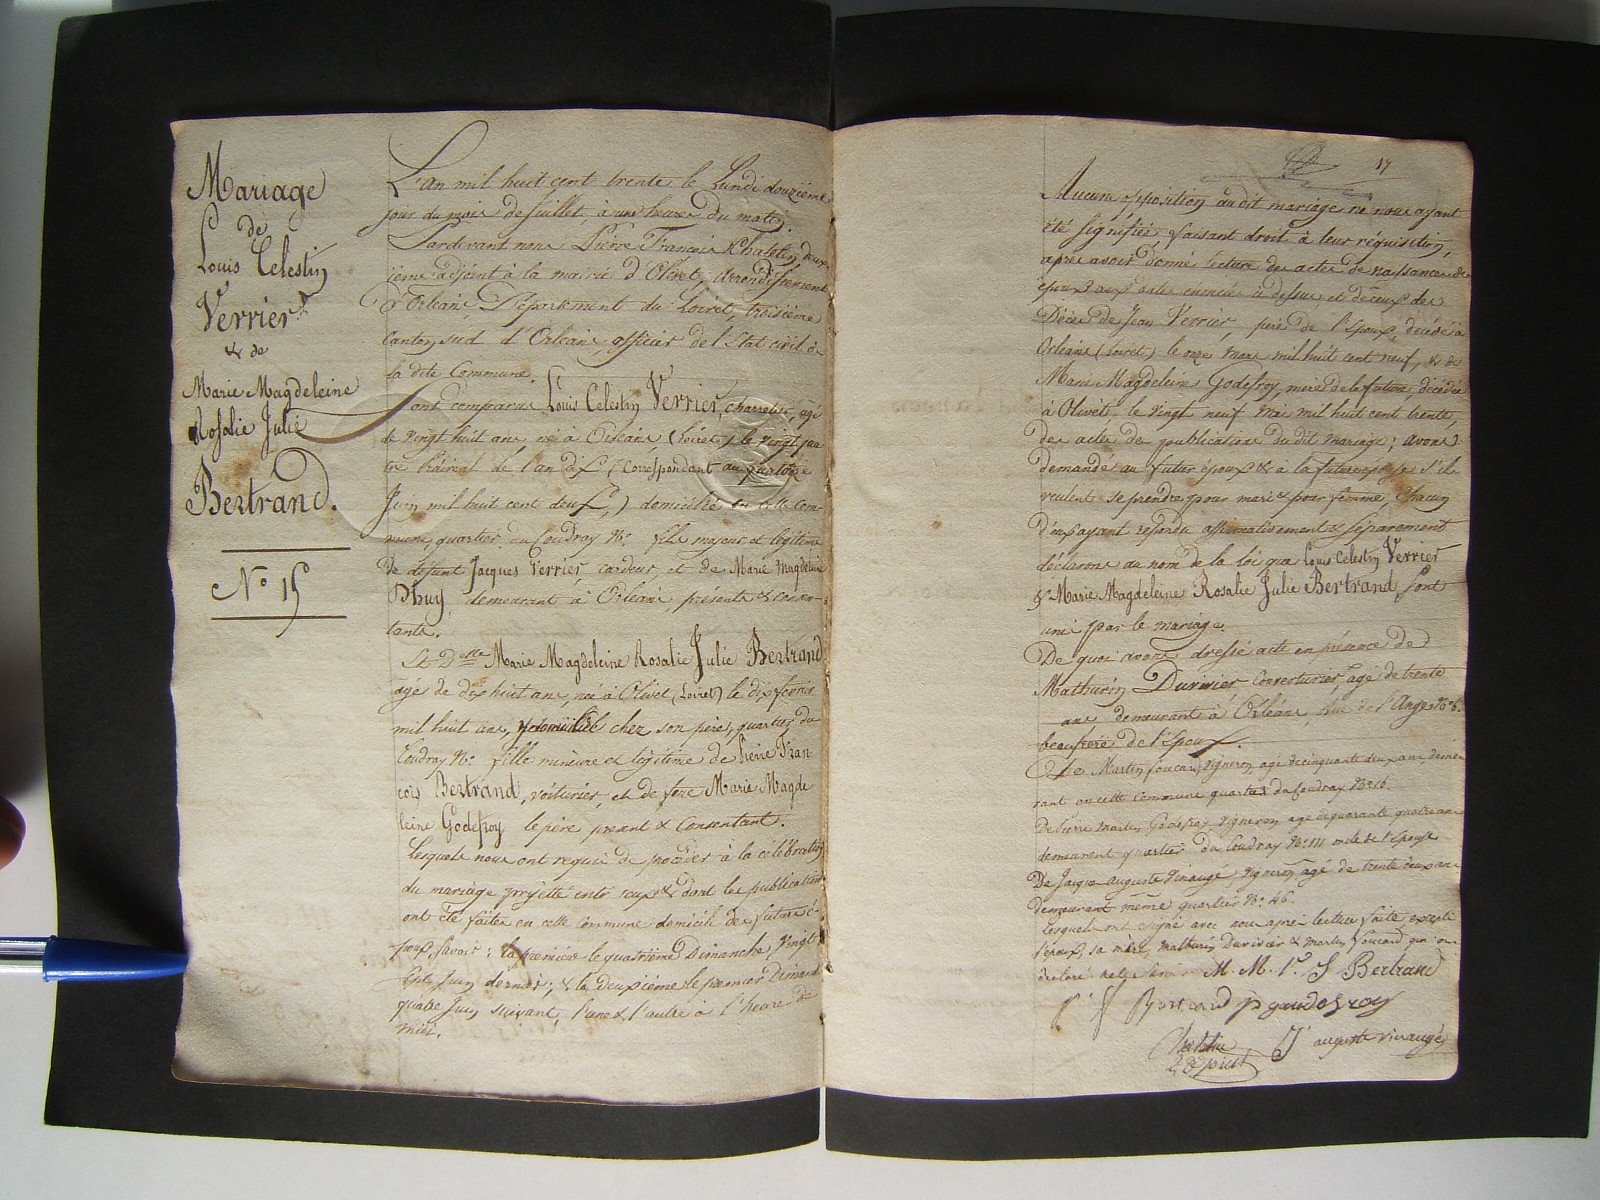 Mariage
de
Louis Celestin
Verrier
& de
Marie Magdeleine
Rosalie Julie
Bertrand.
N° 15
L'an mil huit cent trente le Lundi douzième
jour du mois de Juillet, à une heure du matin.
Pardevant nous Pierre François Chatelin, deux-
ième adjoint à la mairie d'Olivet, arrondissement
d'Orléans, Département du Loiret, troisième
Canton sud d'Orléans, officier de l'Etat civil de
la dite Commune.
ont comparus Louis Celestin Verrier, charretier, agé
de vingt huit ans né à Orléans (Loiret) le vingt qua-
tre Prairial de l'an dix (Correspondant au quatorze
Juin mil huit cent deux,) domicilié en cette com-
mune, quartier du Coudray N° fils majeur et légitime
de defunt Jacques Verrier cardeur, et de Marie Magdeleine
Dhuy demeurant à Orléans présente & consen-
tante.
Et Delle Marie Magdeleine Rosalie Julie Bertrand
agé de dix huit ans, née à Olivet (Loiret) le dix fevrier
mil huit ans, domiciliée chez son père, quartier du
Coudray N° fille mineure et légitime de Pierre Fran-
çois Bertrand, voiturier, et de feue Marie Magde
leine Godefroy le père present & Consentant.
Lesquels nous ont requis de procéder à la célébration
du mariage projetté entr'eux & dont les publications
ont été faites en cette commune domicile des futurs é-
poux, savoir: la première le quatrième Dimanche, vingt
sept Juin dernier; & la deuxième le premier Dimanche
quatre Juin suivant, l'une & l'autre à l'heure de
midi.
17
Aucune opposition au dit mariage ne nous ayant
été signifiée, faisant droit à leur réquisition,
après avoir donné lecture des actes de naissances des
époux aux dates énoncées ci dessus, et de ceux de
Décès de Jean Verrier, père de l'Epoux, décédé à
Orléans (Loiret) le onze Mars mil huit cent neuf, & de
Marie Magdeleine Godefroy, mere de la future, décédée
à Olivet, le vingt neuf Mai mil huit cent trente,
des actes de publications du dit mariage; avons
demandé au futur époux & à la future épouse s'ils
veulent se prendre pour mari & pour femme, Chacun
d'eux ayant répondu affirmativement & séparement
déclarons au nom de la loi que Louis Celestin Verrier
& Marie Magdeleine Rosalie Julie Bertrand, sont
unis par le mariage.
De quoi avons dressé acte en présence de
Mathurin Duvivier Couverturier, agé de trente
ans demeurant à Orléans, Rue de l'Ange N° 6.
beaufrere de l'Epoux.
De Martin Foucard, vigneron, agé de cinquante deux ans, demeu-
rant en cette Commune quartier du Coudray N° 16.
De Pierre Martin Godefroy vigneron agé de quarante quatre ans
demeurent quartier du Coudray N° 111 oncle de l'Epouse
De Jacque Auguste Vinauge, vigneron agé de trente deux ans
demeurant même quartier N° 46.
lesquels ont signé avec nous après lecture faite excepté
l'époux, sa mère, Mathurin Duvivier & Martin Foucard qui ont
déclaré ne le savoir. M. M. r. J Bertrand
p f Bertrand p gaudefroy
Chatelin J auguste vinaugé